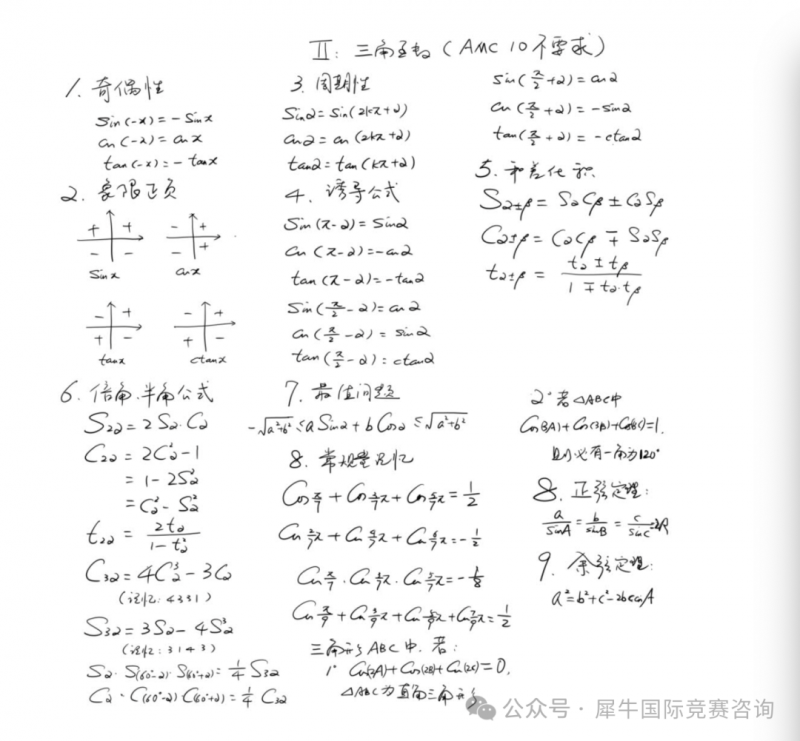 Ⅱ: 三角函数 (AMC 10 不要求)
1. 奇偶性
sin(-x) = -sinx
cos(-x) = cosx
tan(-x) = -tanx
2. 象限正负
+ +
- -
sinx
- +
- +
cosx
- +
+ -
tanx
- +
+ -
ctanx
3. 周期性
sinα = sin(2kπ+α)
cosα = cos(2kπ+α)
tanα = tan(kπ+α)
4. 诱导公式
sin(π-α) = sinα
cos(π-α) = -cosα
tan(π-α) = -tanα
sin(π/2-α) = cosα
cos(π/2-α) = sinα
tan(π/2-α) = ctanα
sin(π/2+α) = cosα
cos(π/2+α) = -sinα
tan(π/2+α) = -ctanα
5. 和差化积
Sα±β = SαCβ ± CαSβ
Cα±β = CαCβ ∓ SαSβ
tα±β = (tα ± tβ)/(1 ∓ tα·tβ)
6. 倍角.半角公式
S2α = 2Sα·Cα
C2α = 2C²α - 1
= 1 - 2S²α
= C²α - S²α
t2α = 2tα/(1 - t²α)
C3α = 4C³α - 3Cα
(记忆: 4331)
S3α = 3Sα - 4S³α
(记忆: 3143)
Sα·S(60°-α)·S(60°+α) = 1/4 S3α
Cα·C(60°-α)C(60°+α) = 1/4 C3α
7. 最值问题
-√(a²+b²) ≤ a Sinα + b Cosα ≤ √(a²+b²)
8. 常规量记忆
Cos π/7 + Cos 3/7π + Cos 5/7π = 1/2
Cos 2/7π + Cos 4/7π + Cos 6/7π = -1/2
三角形ABC中, 若:
1° Cos(2A)+Cos(2B)+Cos(2C) = 0,
△ABC为直角三角形
2° 若△ABC中
Cos(3A)+Cos(3B)+Cos(3C)=1,
则必有一角为120°
8. 正弦定理:
a/sinA = b/sinB = c/sinC = 2R
9. 余弦定理:
a² = b²+c²-2bccosA
公众号·犀牛国际竞赛咨询